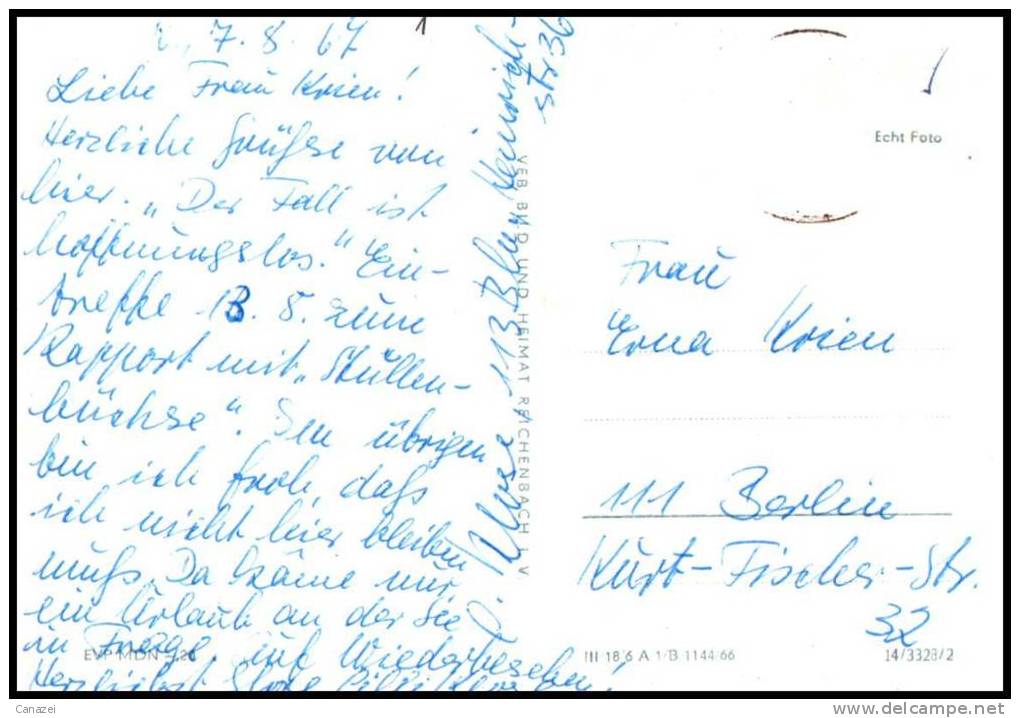 7. 8. 67
Liebe Frau Krien!
Herzliche Grüße von
hier. „Der Fall ist
hoffnungslos." Ein-
treffe 13. 8. zum
Rapport mit „Stullen-
büchse". Im übrigen
bin ich froh, daß
ich nicht hier bleiben
muß. Da käme nur
ein Urlaub an der See
in Frage. Auf Wiedersehen!
Herzlichst
113 Bln Heinrich-
str 36
VEB BILD UND HEIMAT REICHENBACH I. V
Echt Foto
Frau
Erna Krien
111 Berlin
Kurt-Fischer-Str.
32
EVP MDN
III 18 6 A 1/B 1144/66
14/3328/2
Canazei
www.delcampe.net